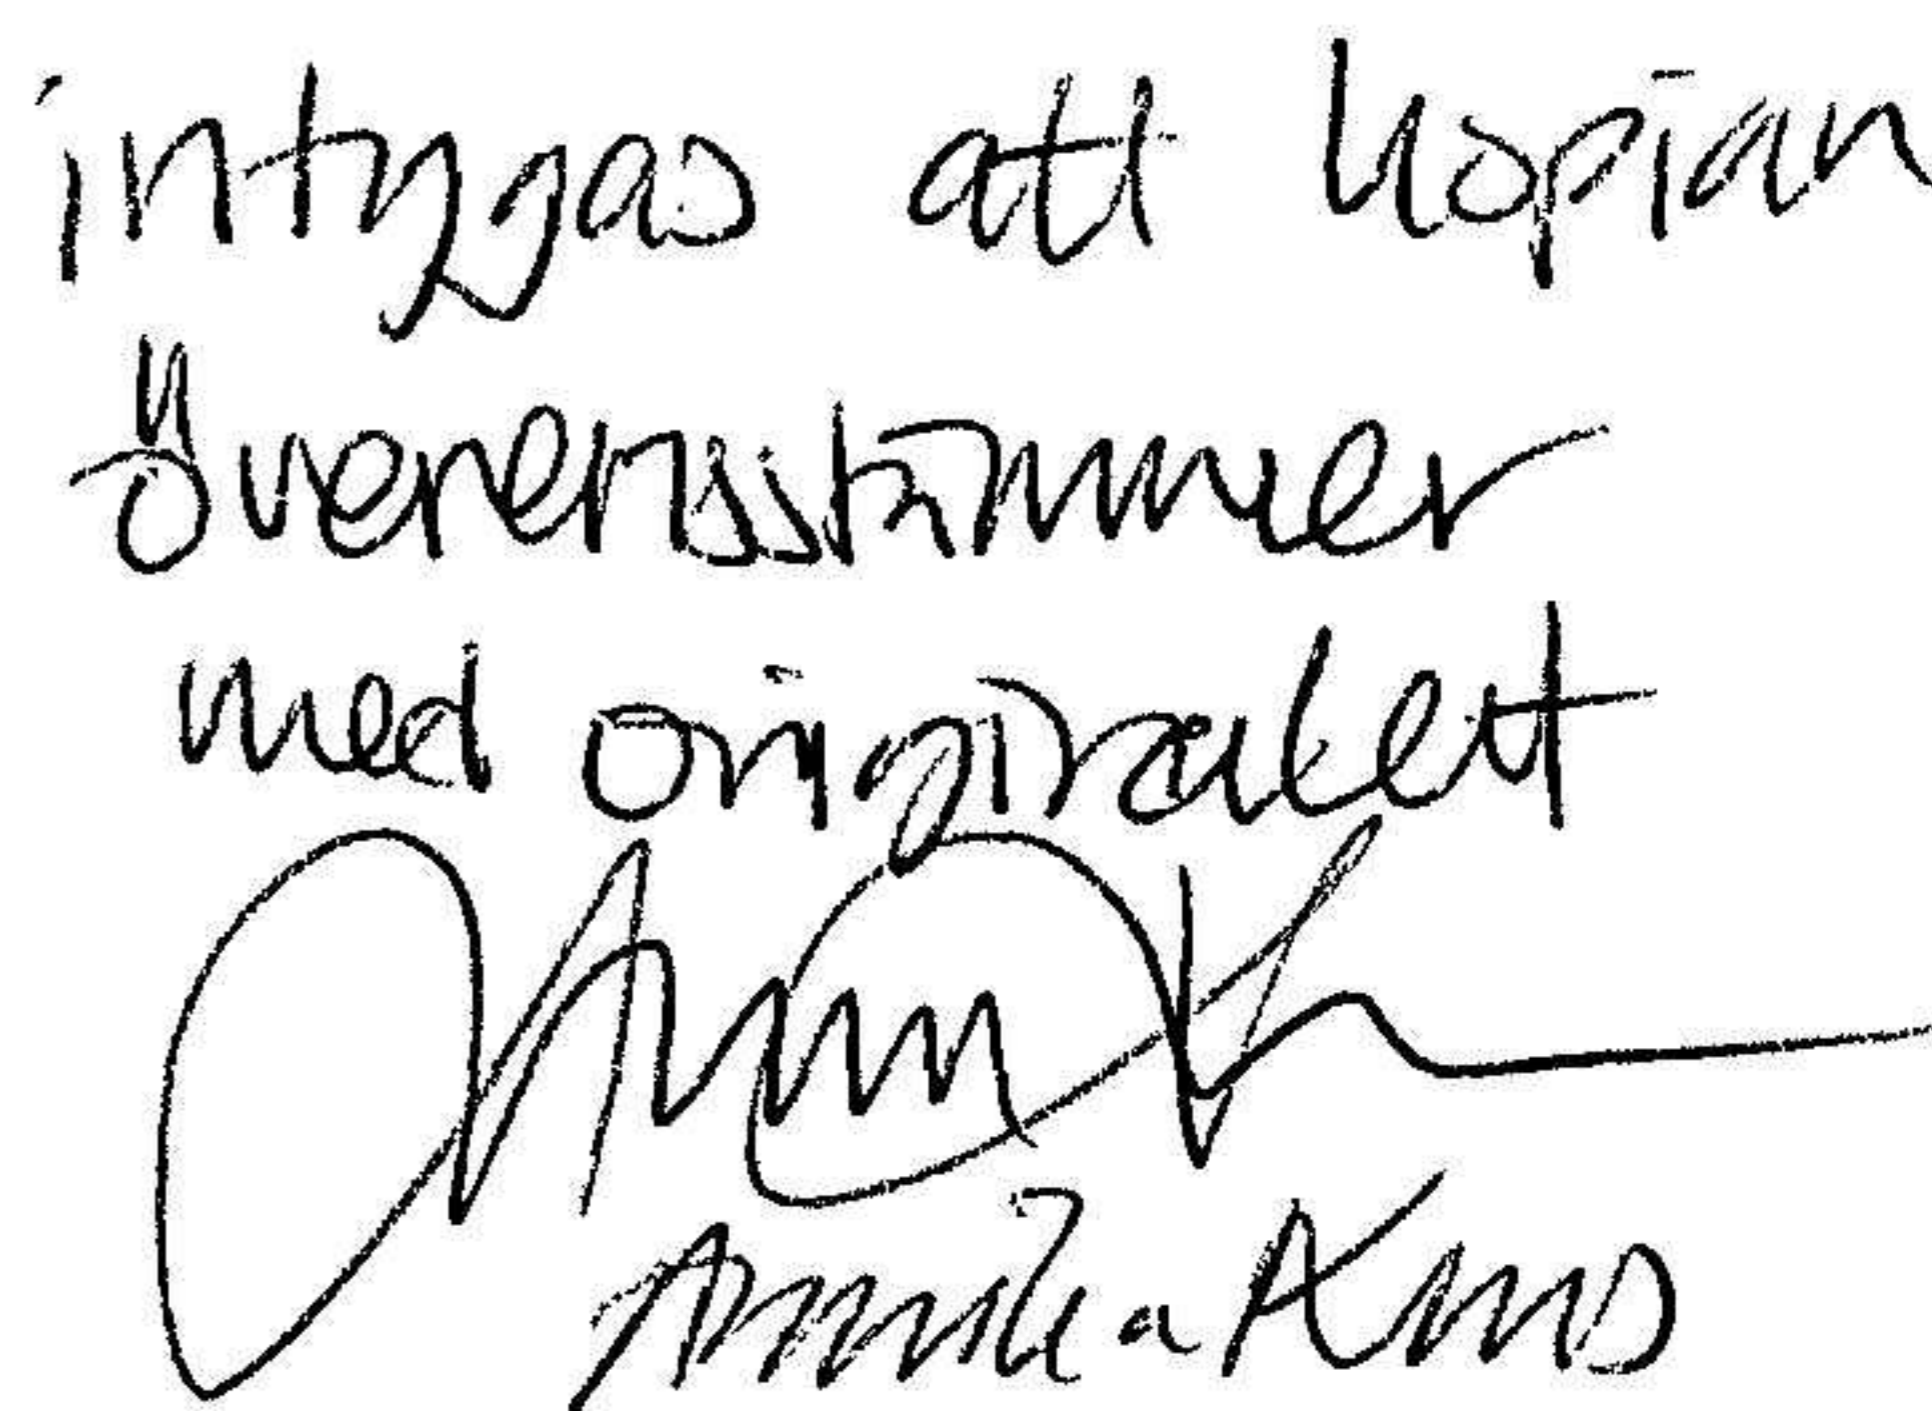 intygas att kopian
överensstämmer
med originalett
Annika